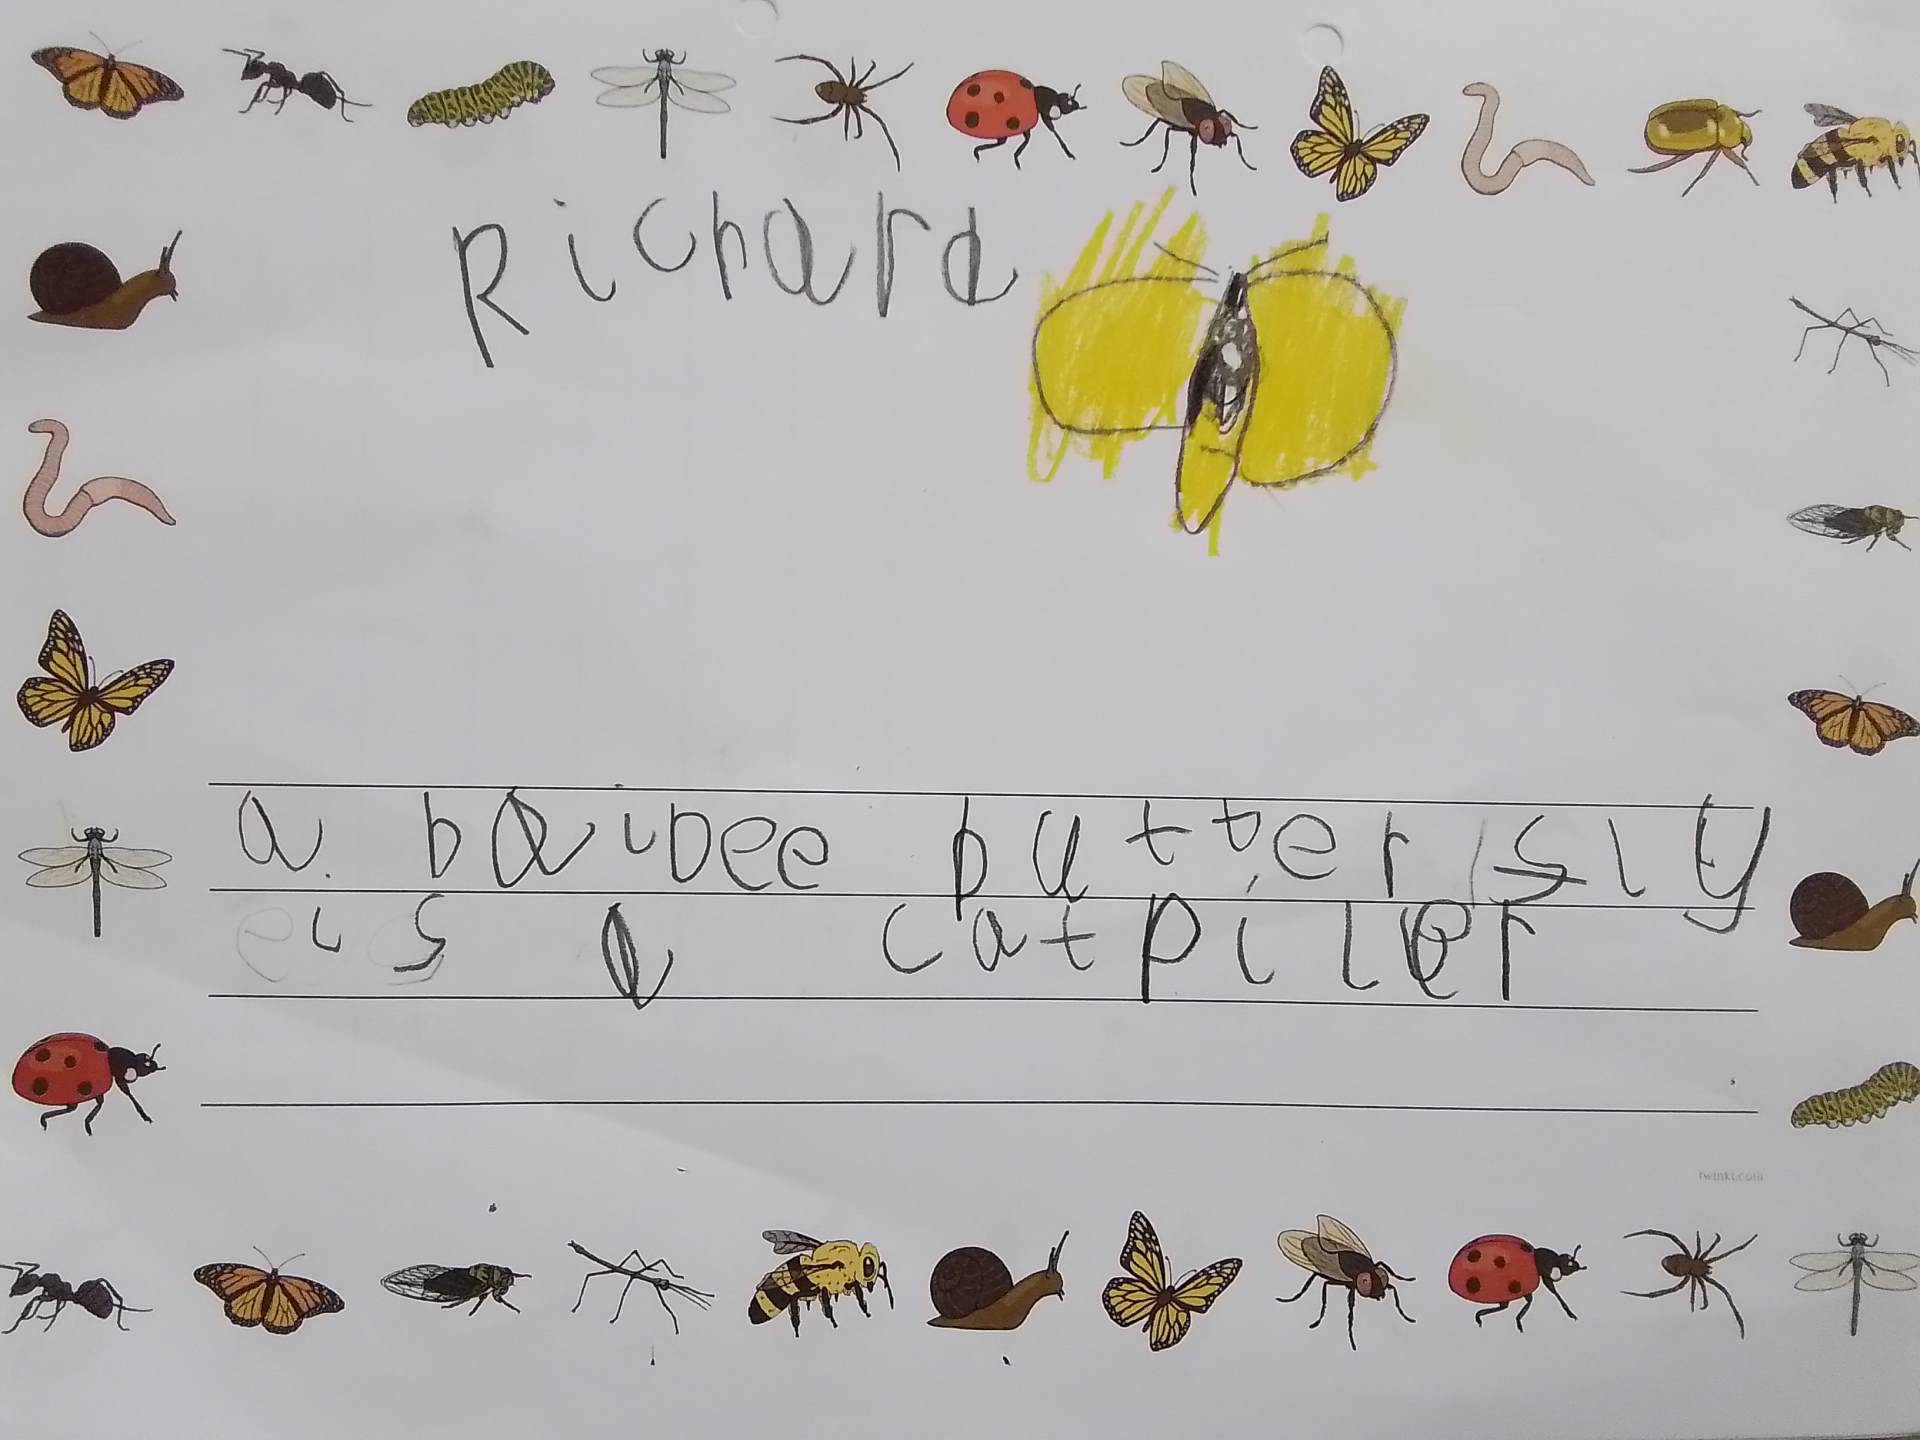 Richard
a baibee butterfly
is a catpiler
twinkl.com